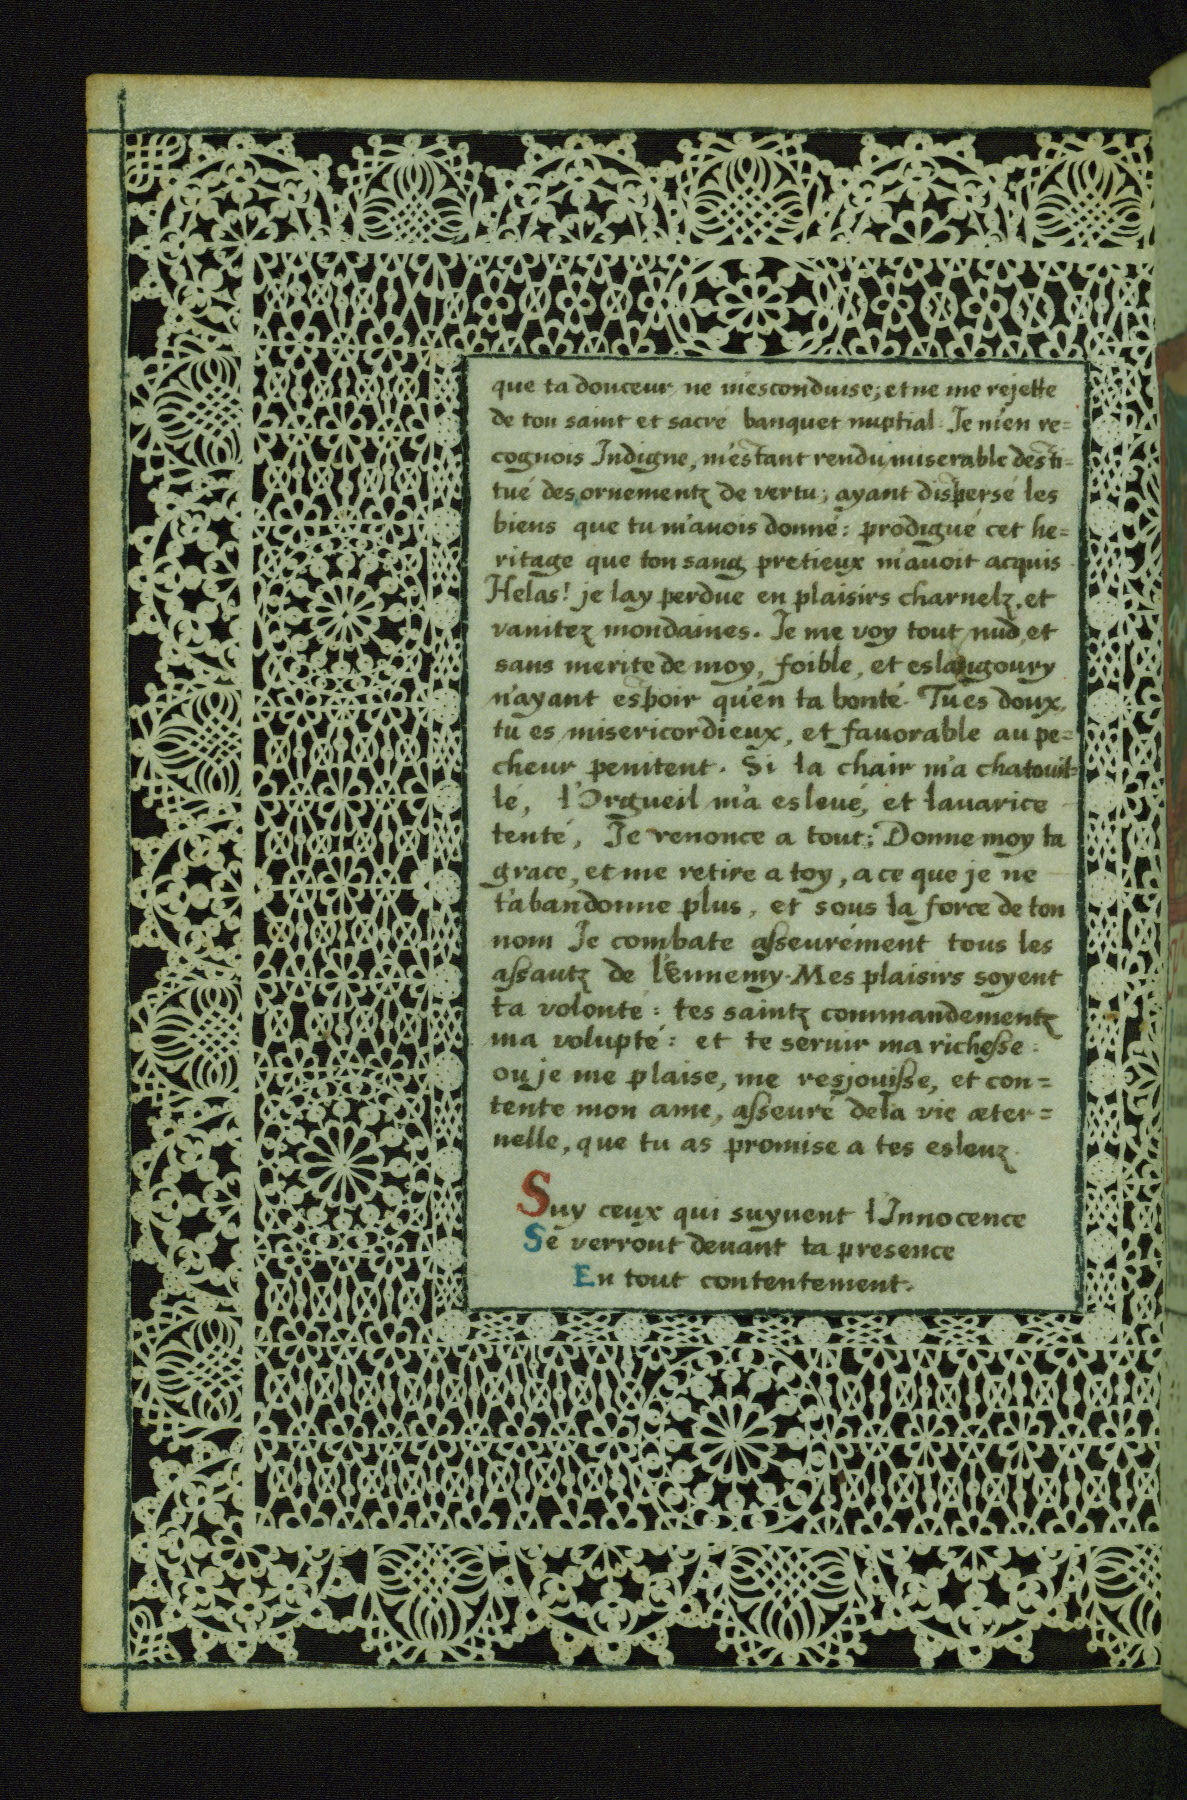 que ta douceur ne m'esconduise; et ne me rejette
de ton saint et sacré banquet nuptial. Je m'en re=
cognois Indigne, m'estant rendu miserable desti=
tué des ornementz de vertu; ayant dispersé les
biens que tu m'auois donné: prodigué cet he=
ritage que ton sang pretieux m'auoit acquis.
Helas! je lay perdue en plaisirs charnelz, et
vanitez mondaines. Je me voy tout nud, et
sans merite de moy, foible, et eslangoury
n'ayant espoir qu'en ta bonté. Tu es doux,
tu es misericordieux, et fauorable au pe=
cheur penitent. Si la chair m'a chatouil=
lé, l'Orgueil m'a esleué, et lauarice
tenté, Je renonce a tout; Donne moy ta
grace, et me retire a toy, a ce que je ne
t'abandonne plus, et sous la force de ton
nom Je combate asseurément tous les
assautz de l'ennemy. Mes plaisirs soyent
ta volonté: tes saintz commandementz
ma volupté: et te seruir ma richesse:
ou je me plaise, me resjouisse, et con=
tente mon ame, asseuré dela vie æter=
nelle, que tu as promise a tes esleuz.
Suy ceux qui suyuent l'Innocence
Se verront deuant ta presence
En tout contentement.